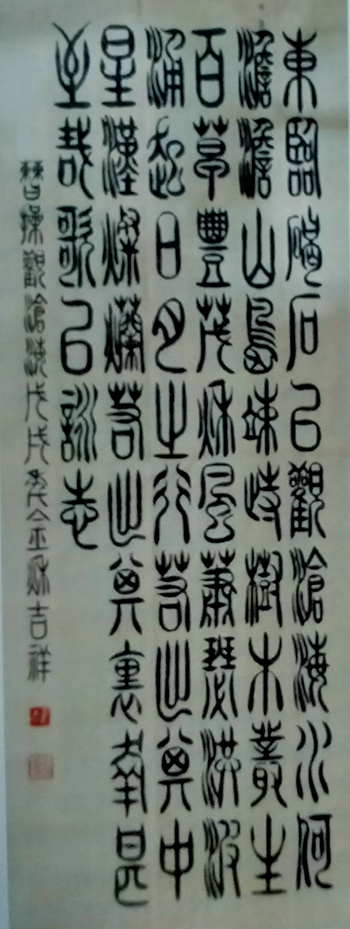 東臨碣石以觀滄海水何
澹澹山島竦峙樹木叢生
百草豐茂秋風蕭瑟洪波
涌起日月之行若出其中
星漢燦爛若出其裏幸甚
至哉歌以詠志
曹操觀滄海戊戌年金秋吉祥